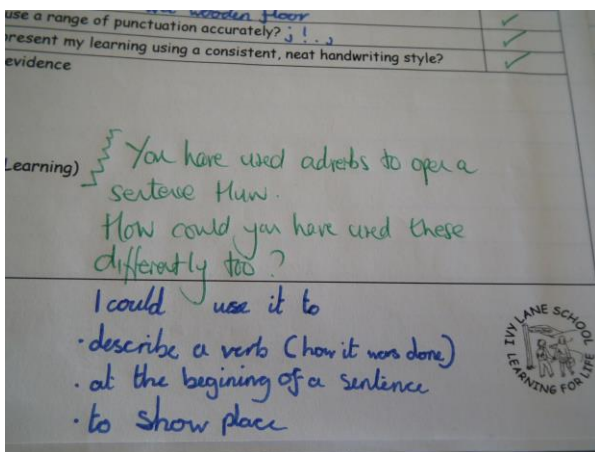 wooden floor
use a range of punctuation accurately? ; ! . ,
present my learning using a consistent, neat handwriting style?
evidence
Learning)
You have used adverbs to open a
sentence Huw.
How could you have used these
differently too?
I could use it to
· describe a verb (how it was done)
· at the begining of a sentence
· to show place
IVY LANE SCHOOL
LEARNING FOR LIFE